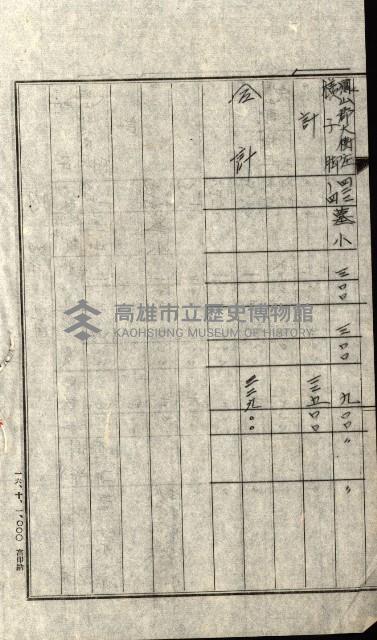 鳳山郡大樹庄
檨子脚 四三一四 墓 小 三〇〇 三〇〇 九〇〇 〃 〃
計 三五〇〇
合計 二二九〇〇
高雄市立歷史博物館
KAOHSIUNG MUSEUM OF HISTORY
一六、十、1,000